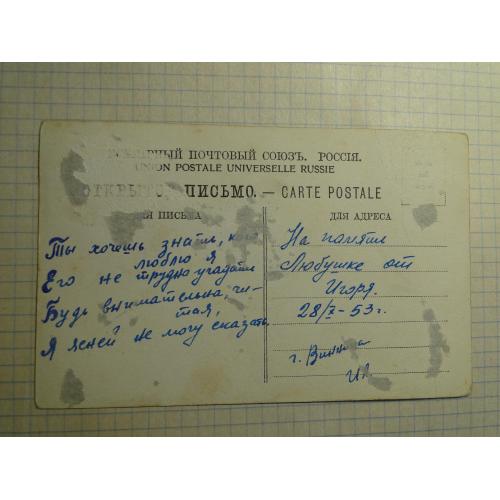 ПОЧТОВЫЙ СОЮЗЪ. РОССІЯ.
UNION POSTALE UNIVERSELLE RUSSIE
ПИСЬМО. — CARTE POSTALE
ПИСЬМА
ДЛЯ АДРЕСА
Ты хочешь знать, кого
люблю я
Его не трудно угадать
Будь внимательна, чи-
тая,
Я ясней не могу сказать.
На память
Любушке от
Игоря.
28/X-53г.
г.